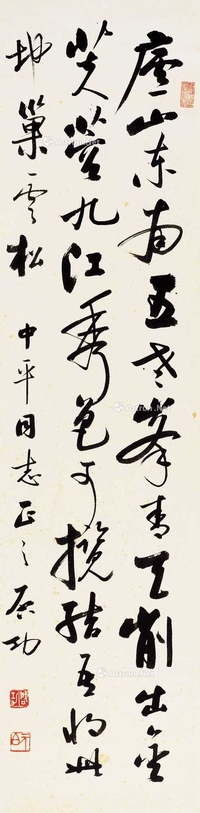 廬山東南五老峯青天削出金
芙蓉九江秀色可攬結吾將此
地巢雲松 中平同志正之 启功